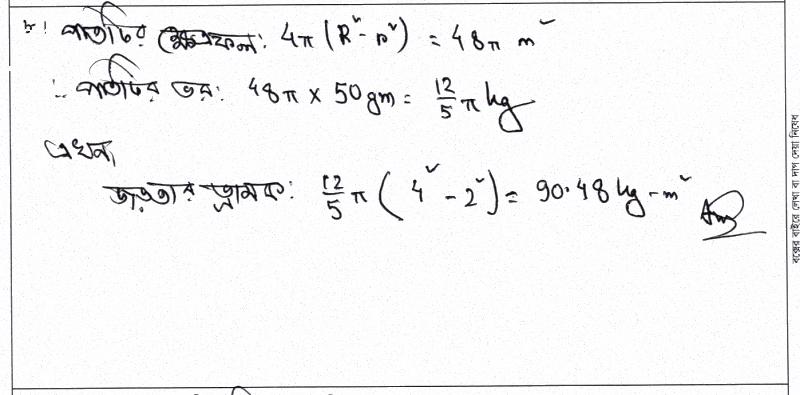 ৮। পাতটির ক্ষেত্রফল: 4π (R² - r²) = 48π m²
∴ পাতটির ভর: 48π × 50 gm = 12/5 π kg
এখন,
জড়তার ভ্রামক: 12/5 π (4² - 2²) = 90.48 kg-m² Ans
বক্সের বাইরে লেখা বা দাগ দেয়া নিষেধ